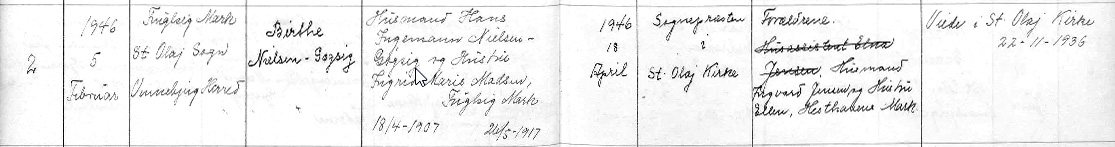 2
1946
5
Februar
Fuglsig Mark
St. Olaj Sogn
Vennebjerg Herred
Birthe
Nielsen-Gogsig
Husmand Hans
Ingemann Nielsen-
Gogsig og Hustru
Ingrid Maris Madsen,
Fuglsig Mark
18/4-1907 24/5-1917
1946
18
April
Sognepræsten
i
St. Olaj Kirke
Forældrene.
Husassistent Elna
Jensen, Husmand
Ingvard Jensen og Hustru
Ellen, Hesthavens Mark.
Viede i St. Olaj Kirke
22-11-1936